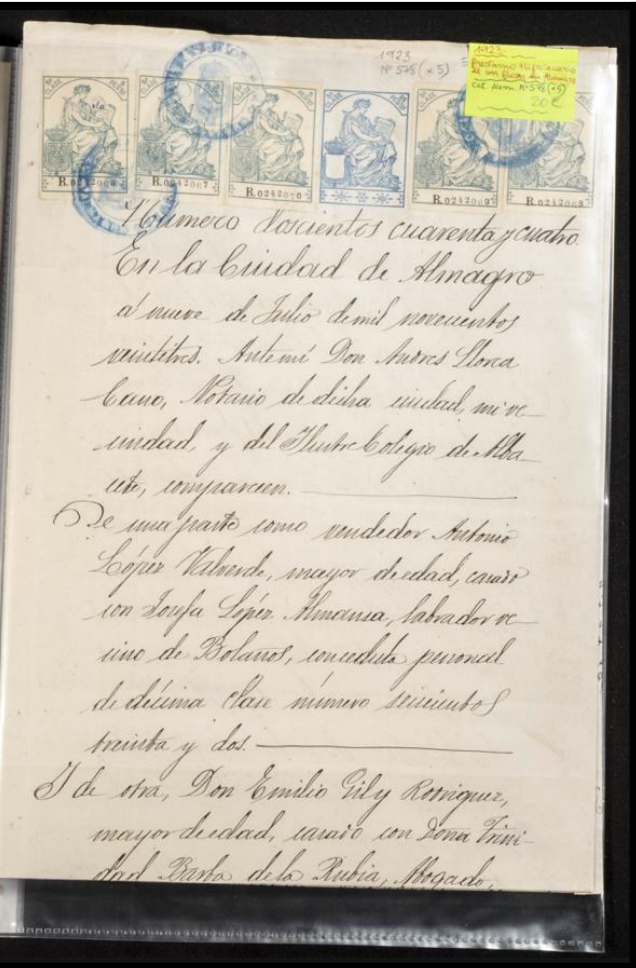 1923
Nº 575 (x5)
1923.
Préstamo Hipotecario
de un
20 €
R.0242067
R.0242070
R.0242069
R.0242068
Numero doscientos cuarenta y cuatro.
En la Ciudad de Almagro
a nueve de Julio de mil novecientos
veintitres. Ante mi Don Andres Llorca
Cano, Notario de dicha ciudad, mi ve-
cindad, y del Ilustre Colegio de Alba-
cete, comparecen.
De una parte como vendedor Antonio
López Valverde, mayor de edad, casado
con Josefa López Almansa, labrador ve-
cino de Bolaños, con cedula personal
de décima clase número seiscientos
treinta y dos.
Y de otra, Don Emilio Gil y Rodriguez,
mayor de edad, casado con Doña Trini-
dad Barba de la Rubia, Abogado,